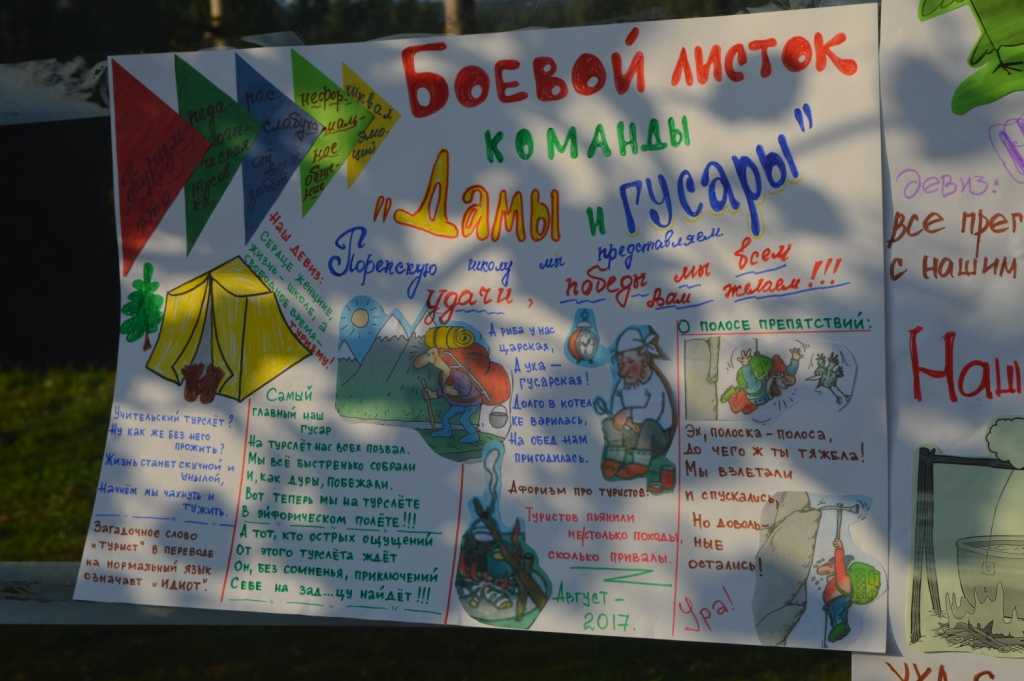 Боевой листок
команды
"Дамы и гусары"
Туризм
это
педа-
гоги-
ческая
тусов-
ка
рас
слабуха
от
забот
нефор-
маль-
ное
обще-
ние
шквал
эмо-
ций
Порепскую школу мы представляем
удачи, победы мы всем
Вам желаем!!!
Наш девиз:
Сердце женщине,
жизнь – школе, а
свободное время –
туризму!
Учительский турслёт?
Ну как же без него
прожить?
Жизнь станет скучной и
унылой,
Начнём мы чахнуть и
тужить.
Загадочное слово
"турист" в переводе
на нормальный язык
означает "идиот".
Самый
главный наш
гусар
На турслёт нас всех позвал.
Мы всё быстренько собрали
И, как дуры, побежали.
Вот теперь мы на турслёте
В эйфорическом полёте!!!
А тот, кто острых ощущений
От этого турслёта ждёт
Он, без сомненья, приключений
Себе на зад...цу найдёт!!!
А рыба у нас
царская,
А уха –
гусарская!
Долго в котел
ке варилась,
На обед нам
пригодилась.
Афоризм про туристов:
Туристов пьянили
не столько походы,
сколько привалы.
Август –
2017.
О полосе препятствий:
Эх, полоска – полоса,
До чего ж ты тяжела!
Мы взлетали
и спускались,
Но доволь-
ные
остались!
Ура!
Девиз:
все прег
с нашим
Наш
уха с